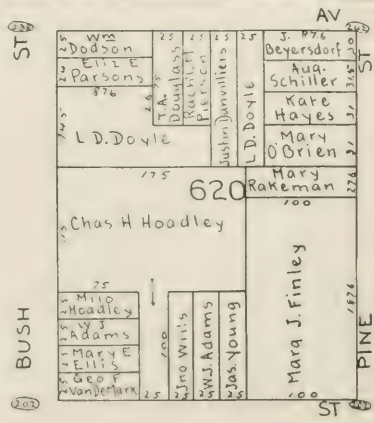 AV
ST
ST
Wm
Dodson
25
Eliz E
Parsons
876
25 25 25 25
T.A.
Douglass
Rachel M
Pierson
Justin Danvilliers
L.D. Doyle
J. 87.6
Beyersdorf
Aug.
Schiller
Kate
Hayes
31
Mary
O'Brien
31
L D. Doyle
175
620
Mary
Rakeman
276
100
Chas H Hoadley
75
Milo
Hoadley
W J
Adams
Mary E
Ellis
Geo F
VanDeMark
100
Jno Wills
W.J. Adams
Jas. Young
25 25 25 25
Mara J. Finley
1876
100
BUSH
PINE
202
ST